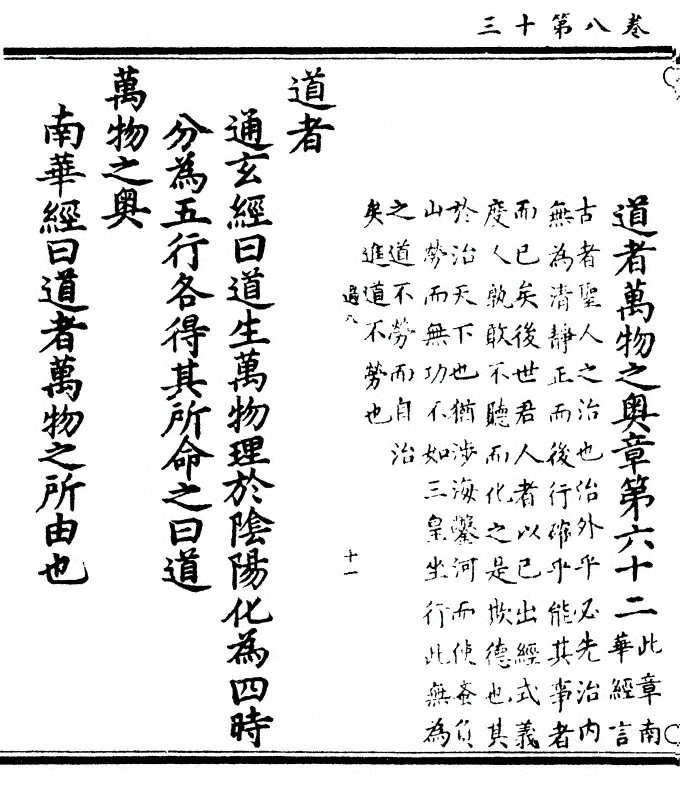 卷八第十三
道者萬物之奧章第六十二
此章南
華經言
古者聖人之治也治外乎必先治内
無為清靜正而後行確乎能其事者
而已矣後世君人者以已出經式義
度人孰敢不聽而化之是欺德也其
於治天下也猶涉海鑿河而使蚤負
山勞而無功不如三皇坐行此無為
之道不勞而自治
矣進道不勞也
八
十一
道者
通玄經曰道生萬物理於陰陽化為四時
分為五行各得其所命之曰道
萬物之奧
南華經曰道者萬物之所由也